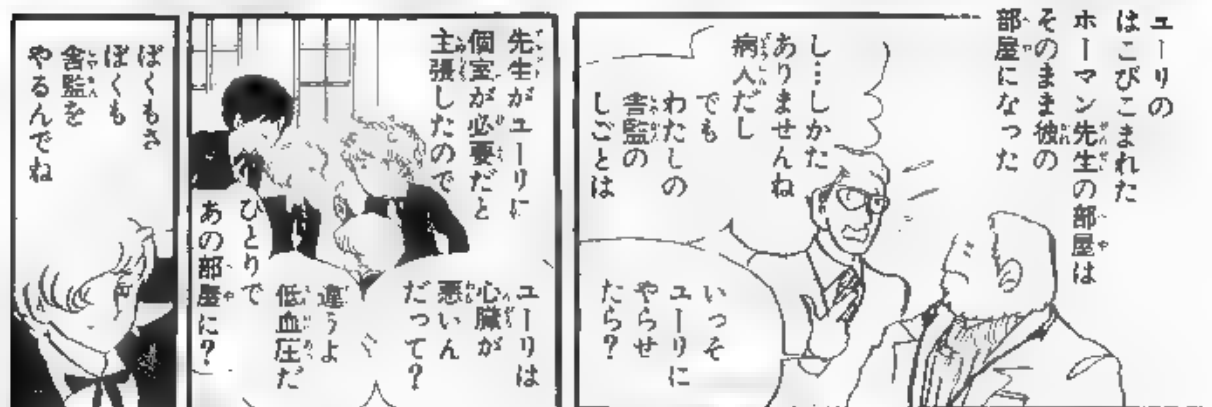 ユーリの
はこびこまれた
ホーマン先生の部屋は
そのまま彼の
部屋になった
し…しかた
ありませんね
病人だし
でも
わたしの
舎監の
しごとは
いっそ
ユーリに
やらせ
たら?
先生がユーリに
個室が必要だと
主張したので
ユーリは
心臓が
悪いん
だって?
違うよ
低血圧だ
ひとりで
あの部屋に?
ぼくもさ
ぼくも
舎監を
やるんでね